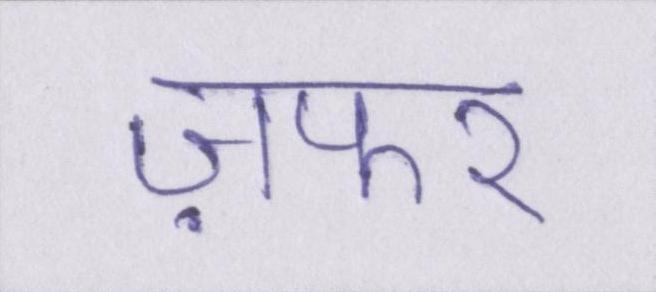 ज़फर